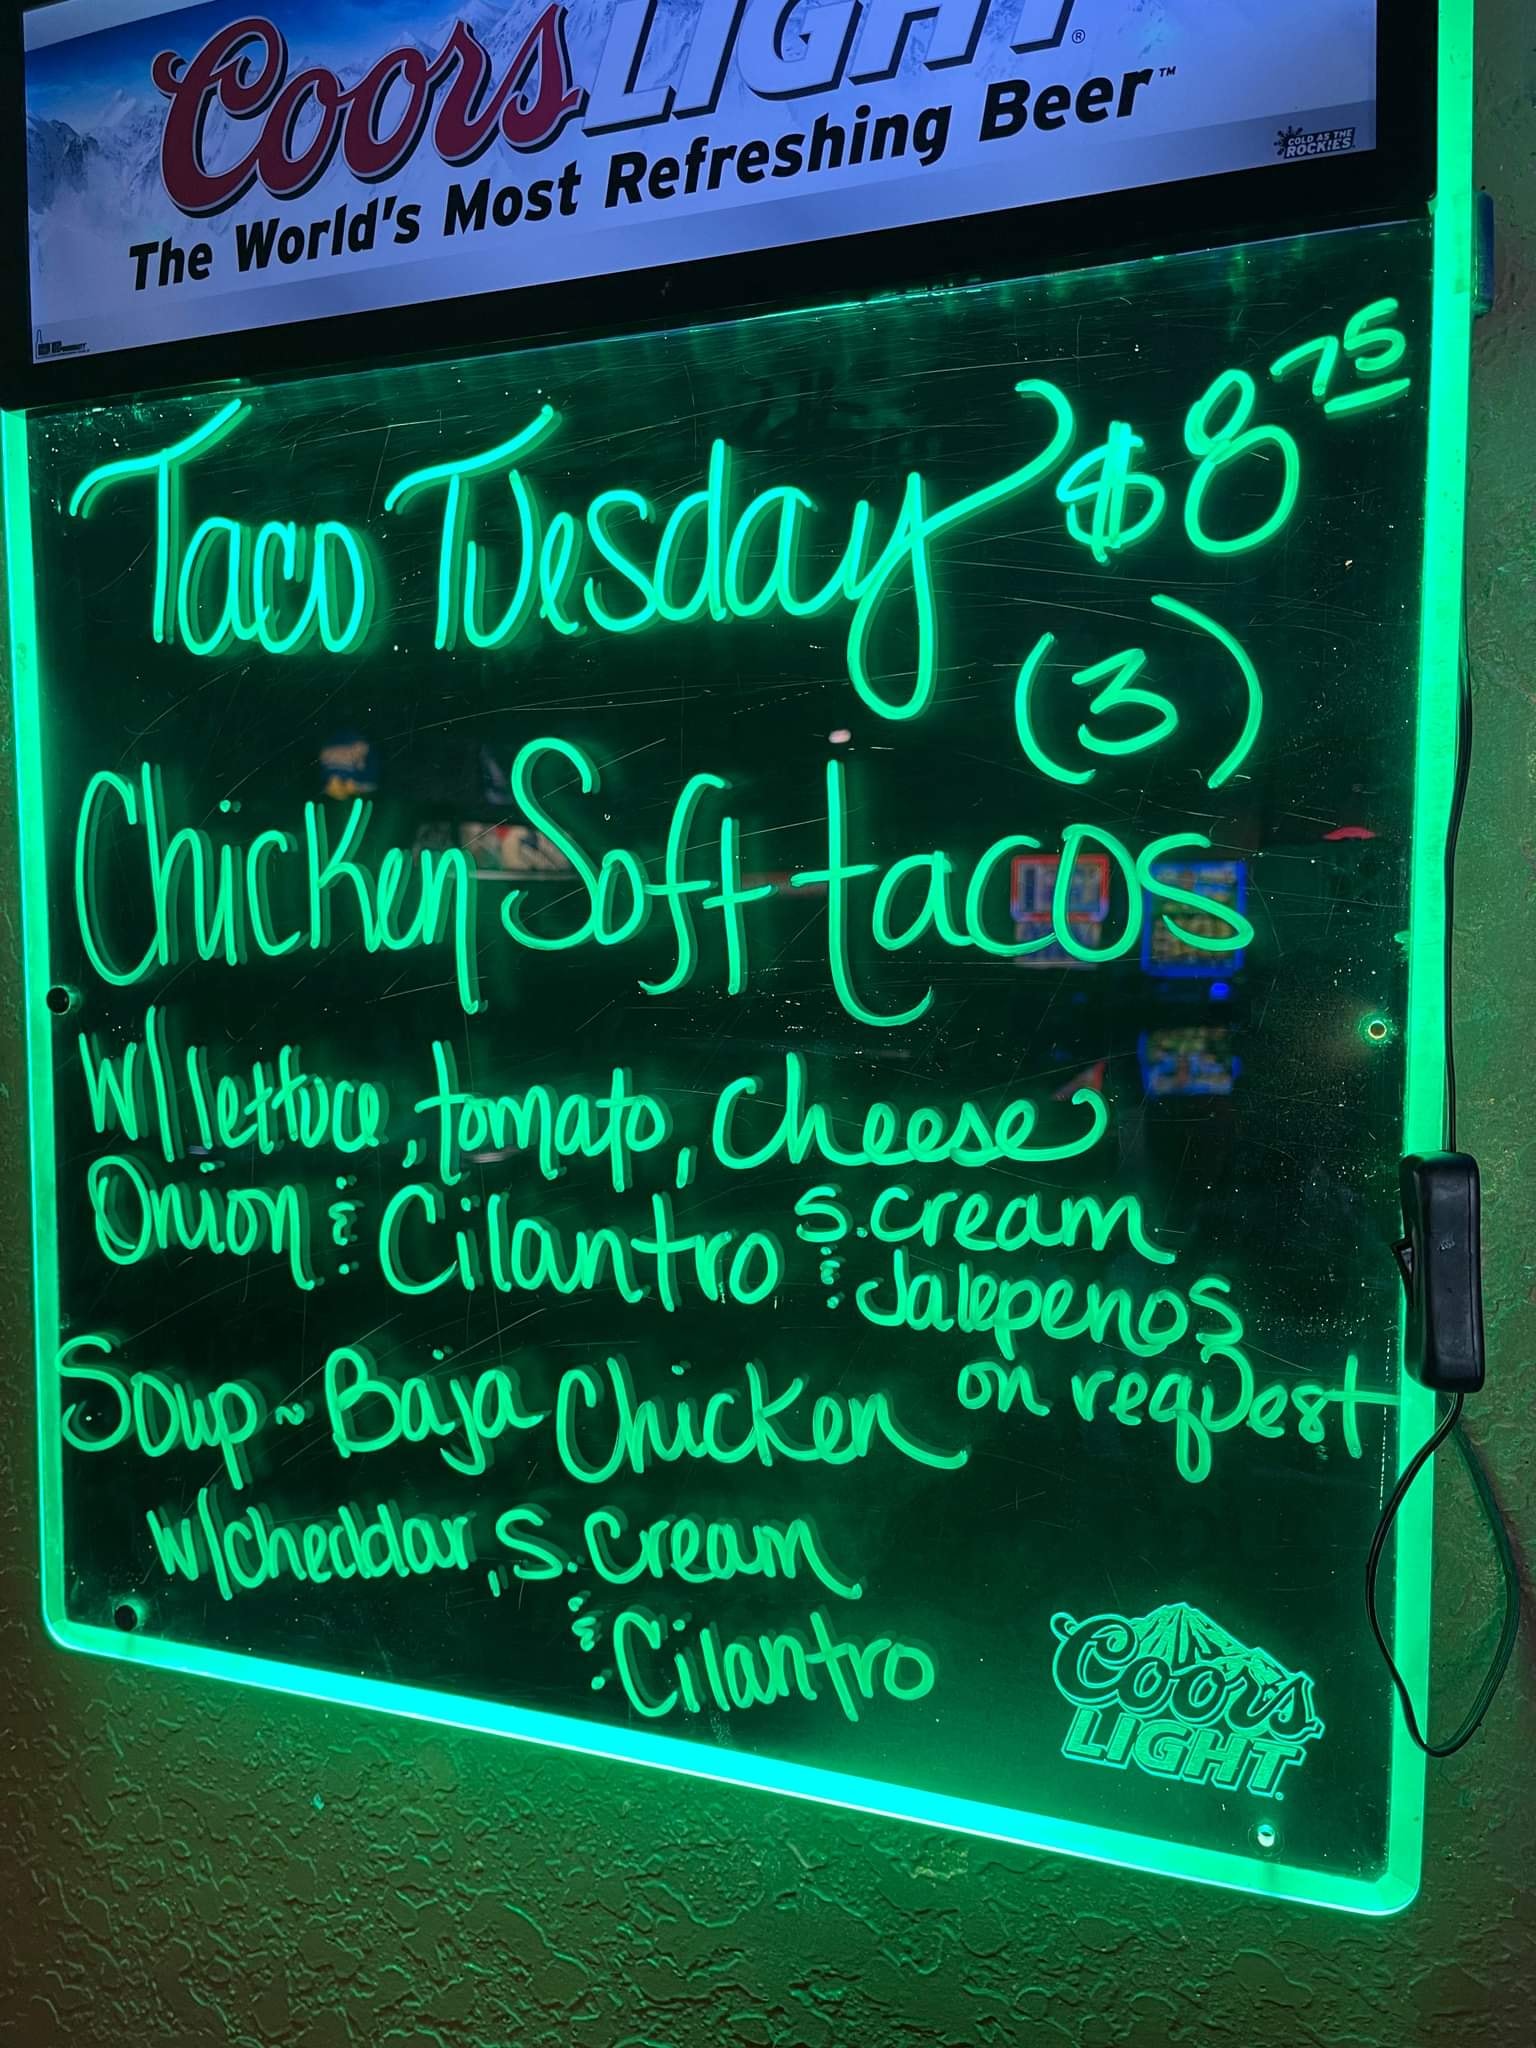 Coors LIGHT®
The World's Most Refreshing Beer™
COLD AS THE
ROCKIES
Taco Tuesday $8.75
(3)
Chicken Soft tacos
w/ lettuce, tomato, Cheese
Onion & Cilantro
s. cream
& Jalepenos
on request
Soup ~ Baja Chicken
w/cheddar, S. Cream
& Cilantro
Coors
LIGHT